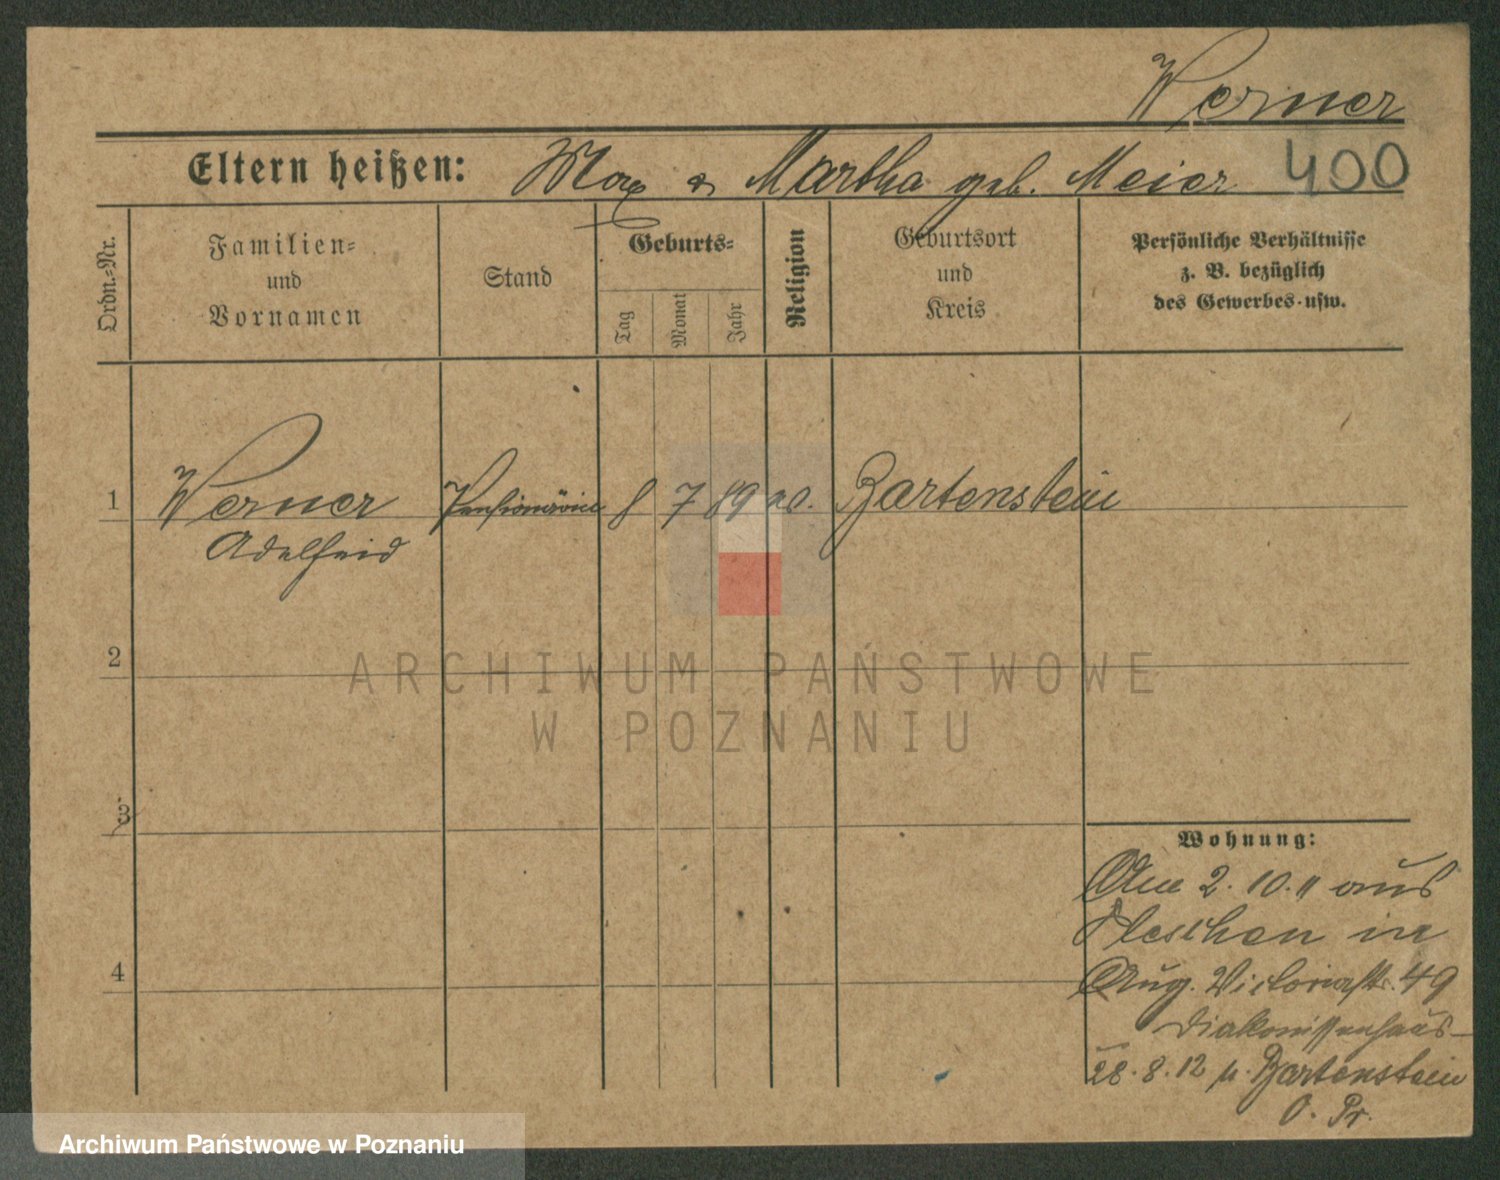 Werner
Eltern heißen: Max & Martha geb. Meier 400
Ordn.-Nr.
Familien-
und
Vornamen
Stand
Geburts-
Tag
Monat
Jahr
Religion
Geburtsort
und
Kreis
Persönliche Verhältnisse
z. B. bezüglich
des Gewerbes usw.
1 Werner Pensionärin 8 7 89 Bartenstein
Adelheid
2
3
4
Wohnung:
2. 10. 11 aus
Pleschen in
Aug. Victoriastr. 49
Diakonissenhaus
28. 8. 12 n. Bartenstein
O. Pr.
ARCHIWUM PAŃSTWOWE
W POZNANIU
Archiwum Państwowe w Poznaniu